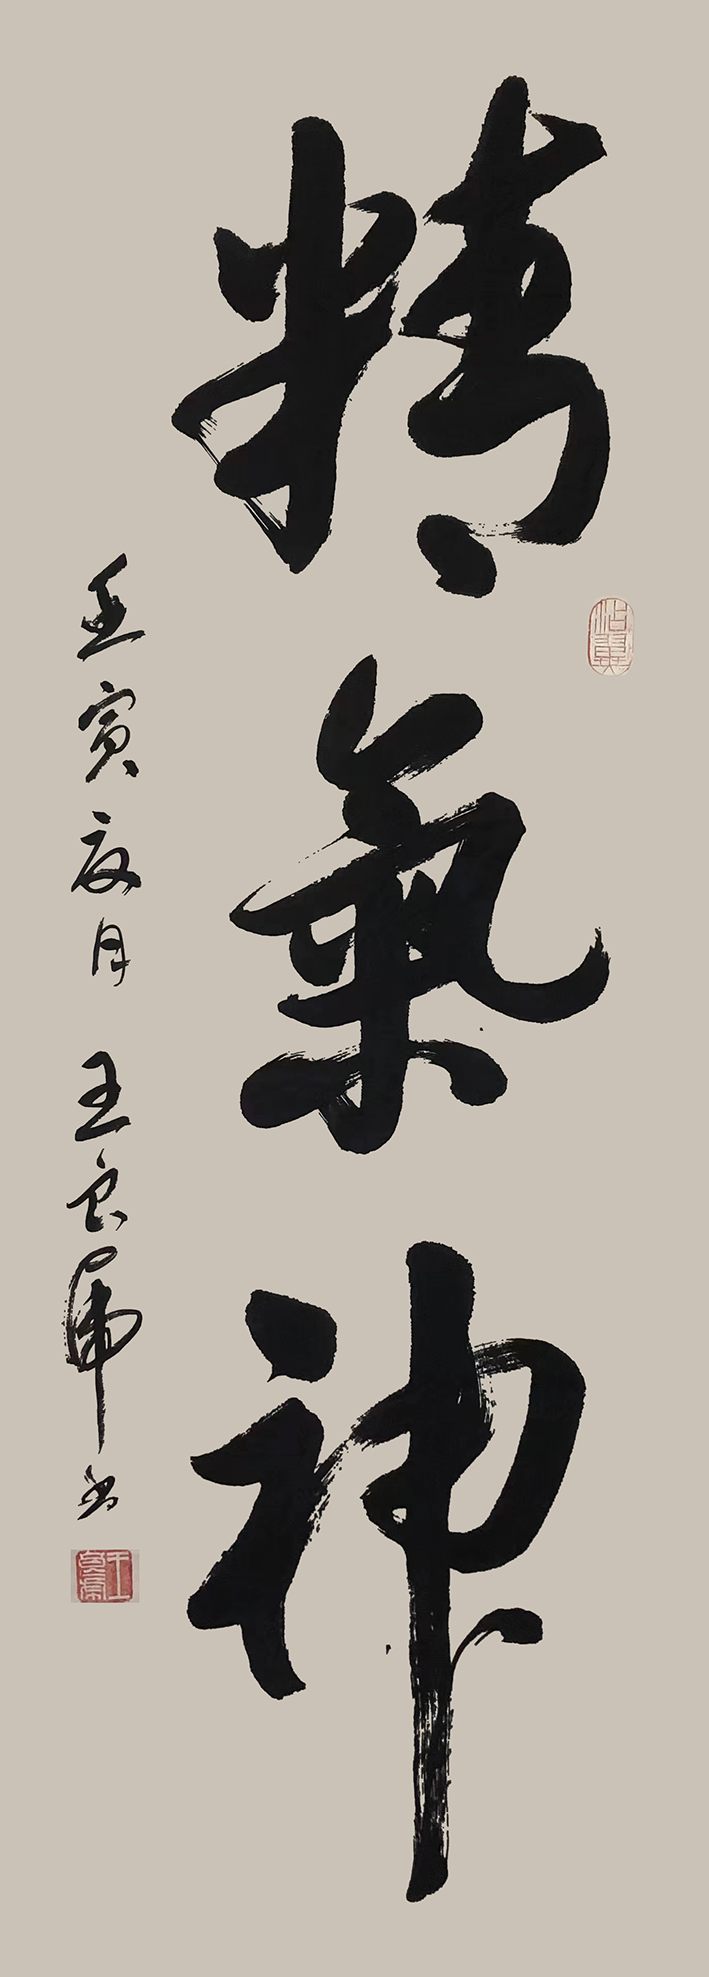 精氣神
壬寅夏月 王良虎书